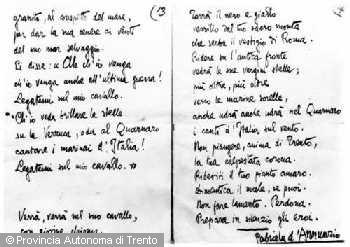 (13
granito, al cospetto del mare,
per dar la sua cenere ai venti
del suo mar selvaggio.
Ei disse: « Ch'io venga
ch'io venga anche all'ultima guerra!
Legatemi sul mio cavallo.
Ch'io veda brillar le stelle
su la Verruca, oda al Quarnaro
cantare i marinai d'Italia!
Legatemi sul mio cavallo. »
Verrà, verrà sul suo cavallo,
Verrà il nero e giallo
vessillo dal tuo
che serba il vestigio di Roma.
Ridere su l'antica fronte
vedrà le sue vergini stelle;
udrà, oltre, più oltre
verso la marina sorella,
anche udrà anche udrà nel Quarnaro
i canti d'Italia sul vento.
Non piangere, anima di Trento,
la tua calpestata corona.
Dimentica il male, se puoi.
Non fare lamento. Perdona.
Prepara in silenzio gli eroi.
Gabriele d'Annunzio
© Provincia Autonoma di Trento